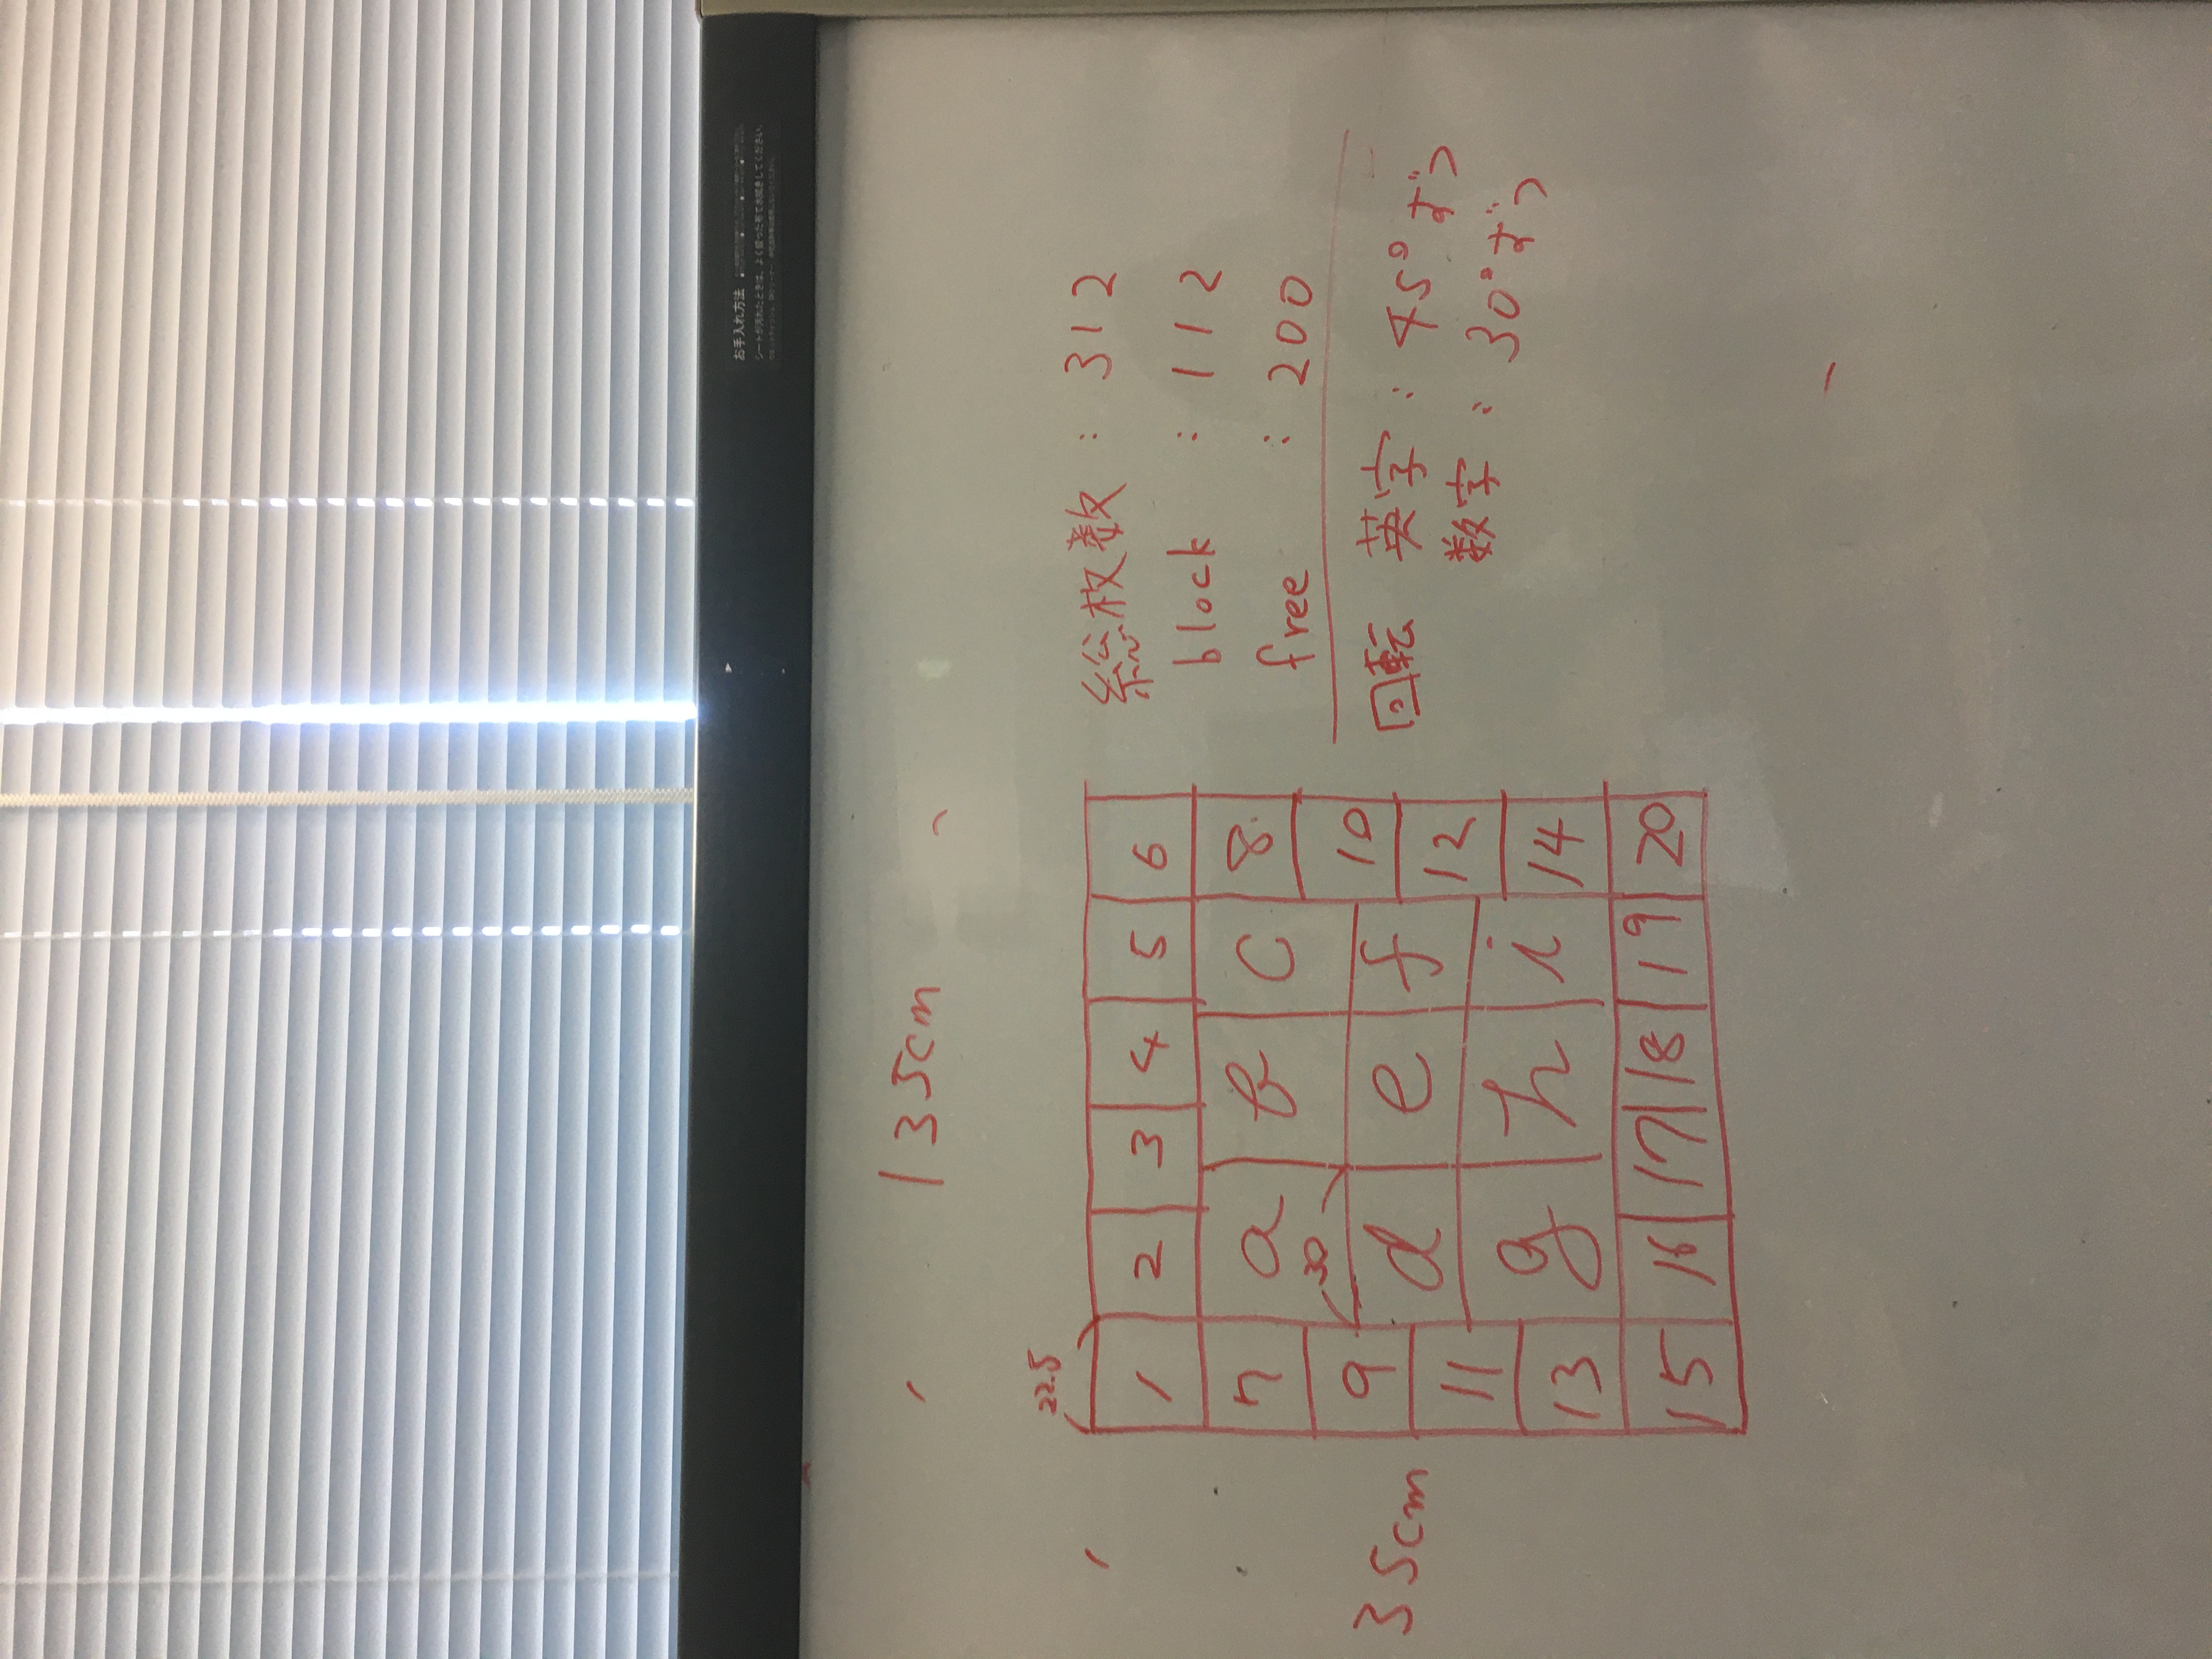 お手入れ方法
シートが汚れたときは、よく絞った布で水拭きしてください。
135cm
22.5
1 2 3 4 5 6
7 a b c 8
30
9 d e f 10
35cm
11 12
13 g h i 14
15 16 17 18 19 20
総枚数 : 312
block : 112
free : 200
回転 英字 : 45°ずつ
数字 : 30°ずつ